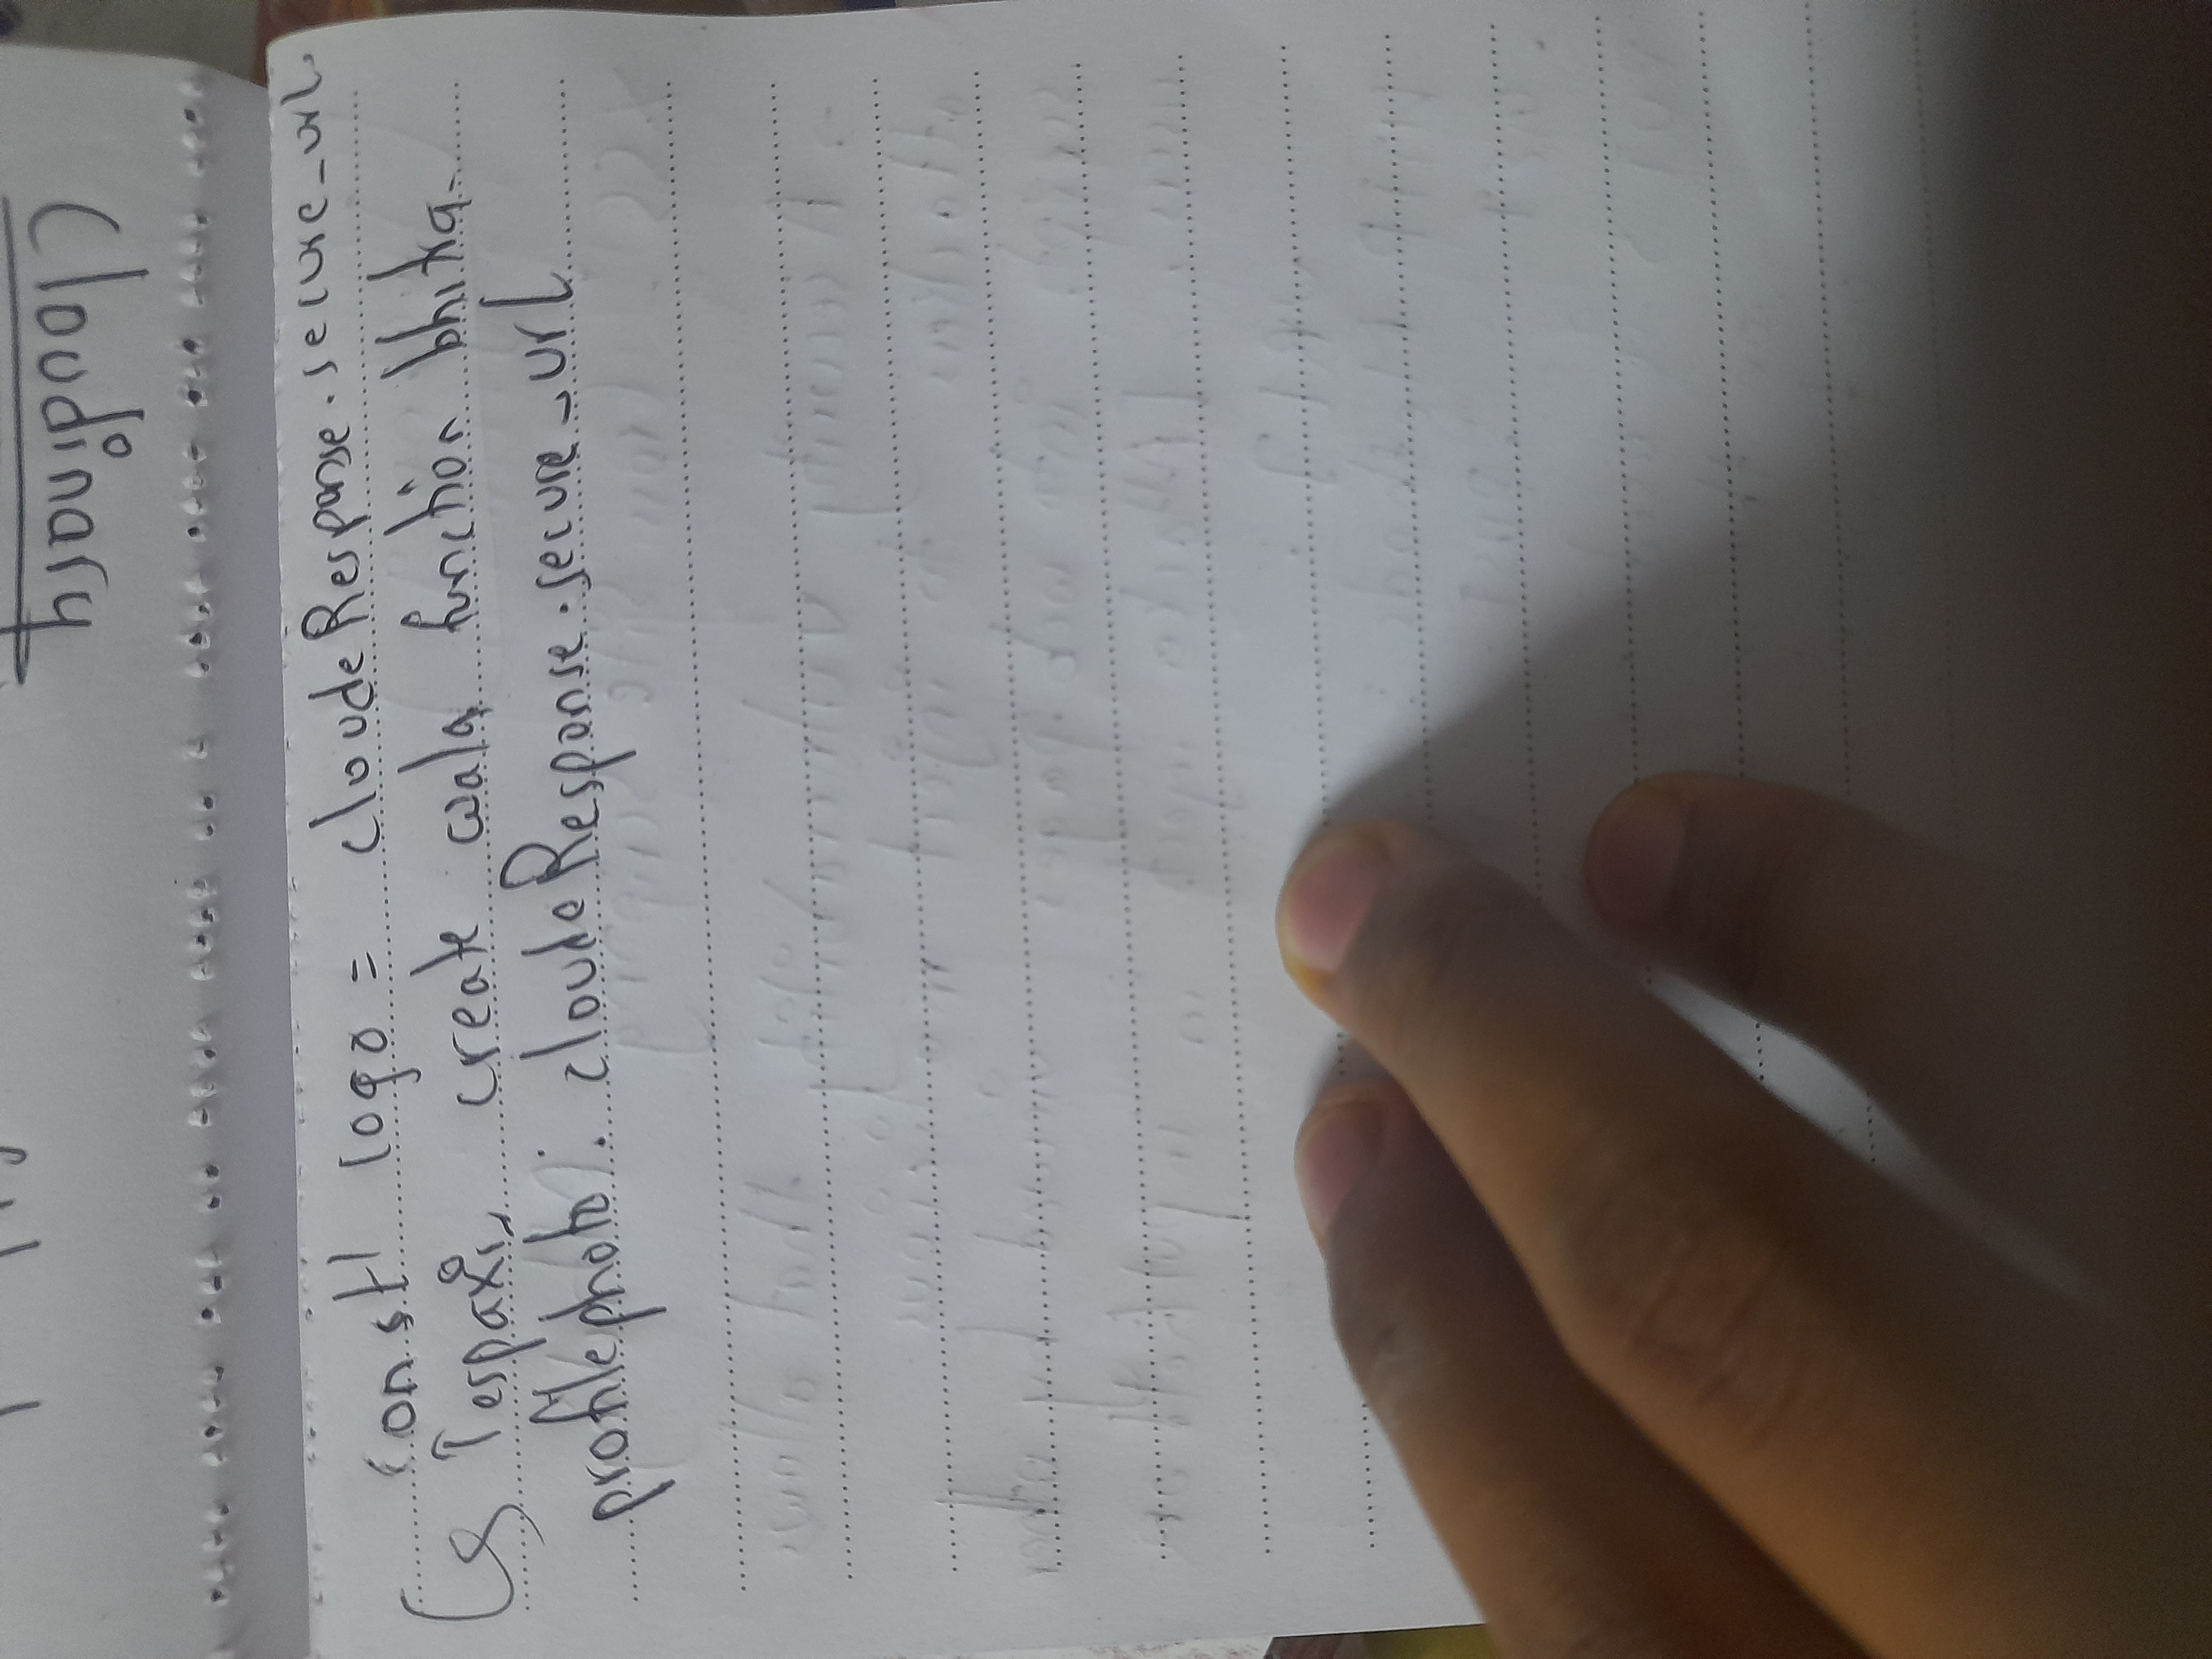 Cloudinary
const logo = cloudeResponse.secure_url.
Tespaxi, create wala function bhitra.
profilephoto : cloudeResponse.secure_url